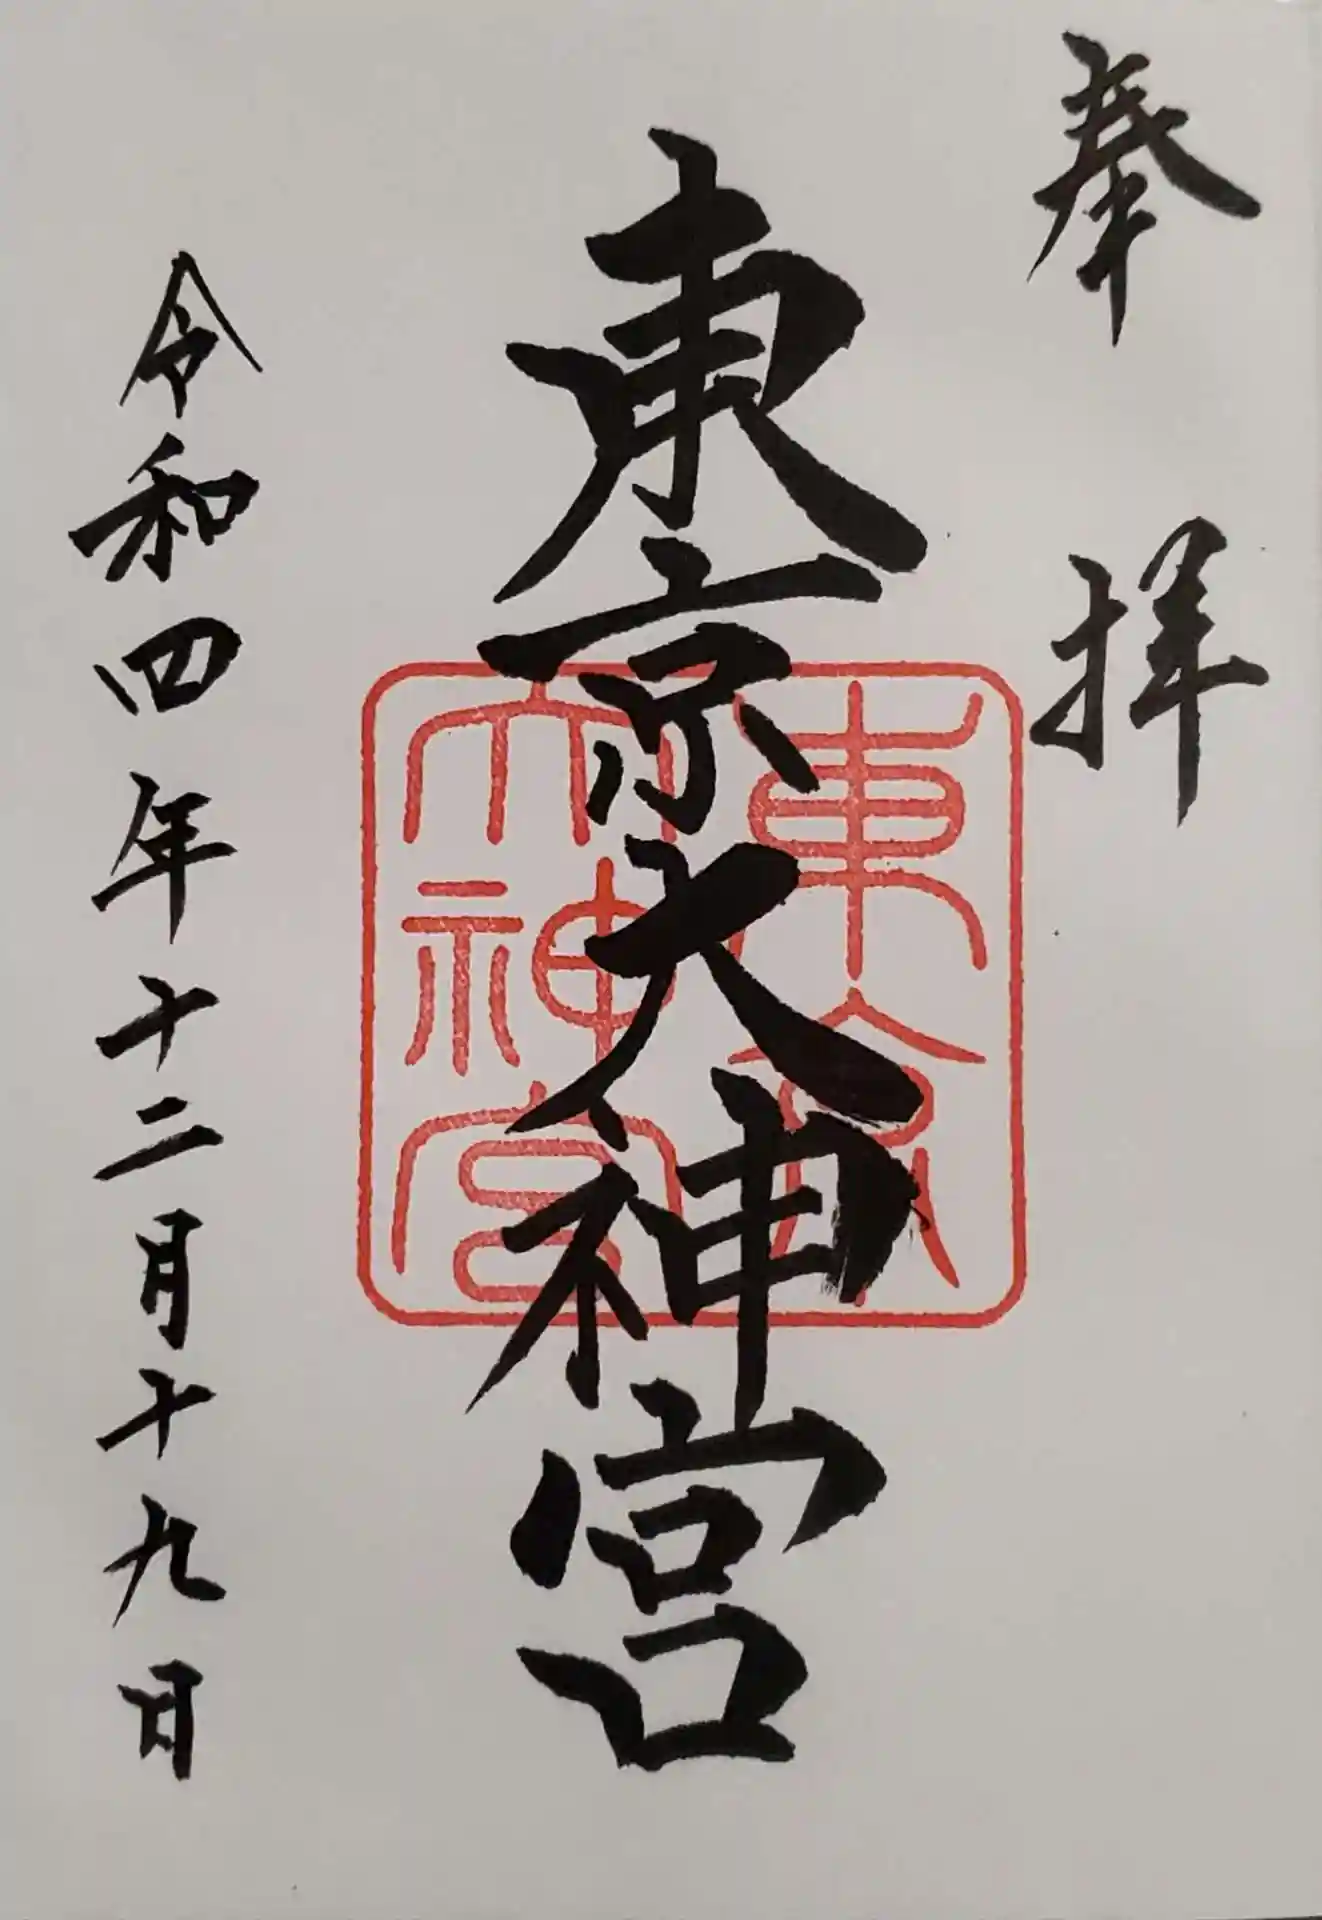 奉拝
東京大神宮
東京
大神宮
令和四年十二月十九日